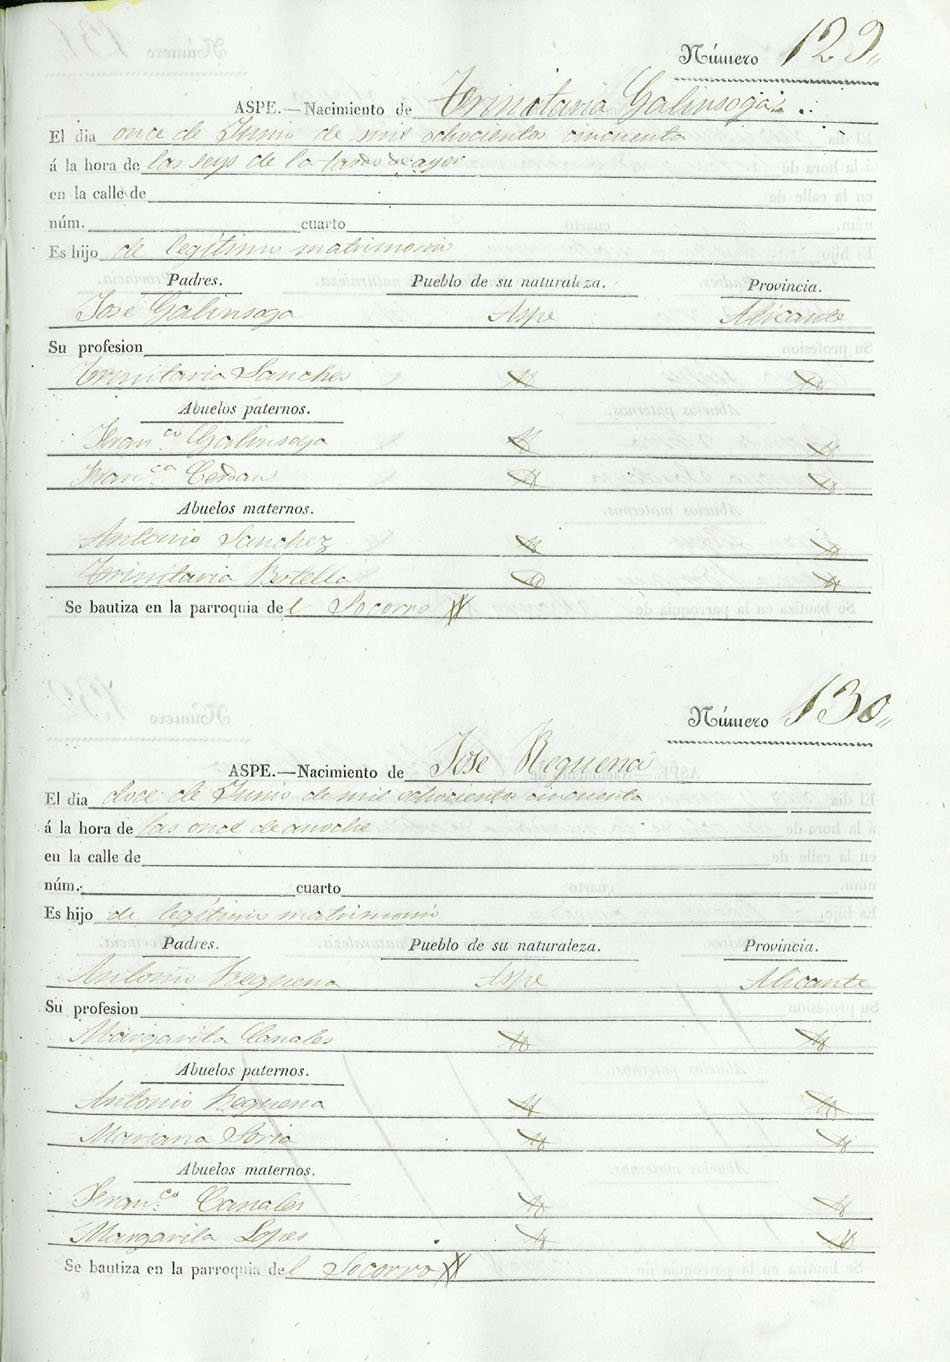 Número 129
ASPE.—Nacimiento de Trinitaria Galinsoga
El dia once de Junio de mil ochocientos cincuenta
á la hora de las seys de la tarde de ayer
en la calle de
núm. cuarto
Es hijo de legítimo matrimonio
Padres. Pueblo de su naturaleza. Provincia.
José Galinsoga Aspe Alicante
Su profesion
Trinitaria Sanches
Abuelos paternos.
Fran.co Galinsoga
Fran.ca Cerdan
Abuelos maternos.
Antonio Sanchez
Trinitaria Botella
Se bautiza en la parroquia del Socorro
Número 130
ASPE.—Nacimiento de Jose Requena
El dia doce de Junio de mil ochocientos cincuenta
á la hora de las once de anoche
en la calle de
núm. cuarto
Es hijo de legítimo matrimonio
Padres. Pueblo de su naturaleza. Provincia.
Antonio Requena Aspe Alicante
Su profesion
Margarita Canales
Abuelos paternos.
Antonio Requena
Mariana Soria
Abuelos maternos.
Fran.co Canales
Margarita Lopes
Se bautiza en la parroquia del Socorro